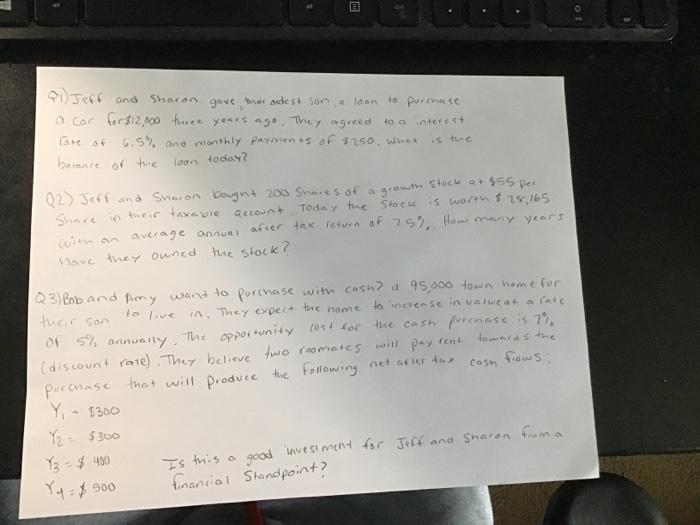 Q1) Jeff and Sharon gave their oldest son a loan to purchase
a car for $12,000 three years ago. They agreed to a interest
rate of 6.5% and monthly payments of $250. What is the
balance of the loan today?
Q2) Jeff and Sharon bought 200 shares of a growth stock at $55 per
share in their taxable account. Today the stock is worth $28,165
with an average annual after tax return of 7.5%. How many years
have they owned the stock?
Q3) Bob and Amy want to purchase with cash? a 95,000 town home for
their son to live in. They expect the home to increase in value at a rate
of 5% annually. The opportunity cost for the cash purchase is 7%
(discount rate). They believe two roomates will pay rent towards the
purchase that will produce the following net after tax cash flows:
Y1 = $300
Y2 = $300
Y3 = $400
Y4 = $500
Is this a good investment for Jeff and Sharon from a
financial standpoint?